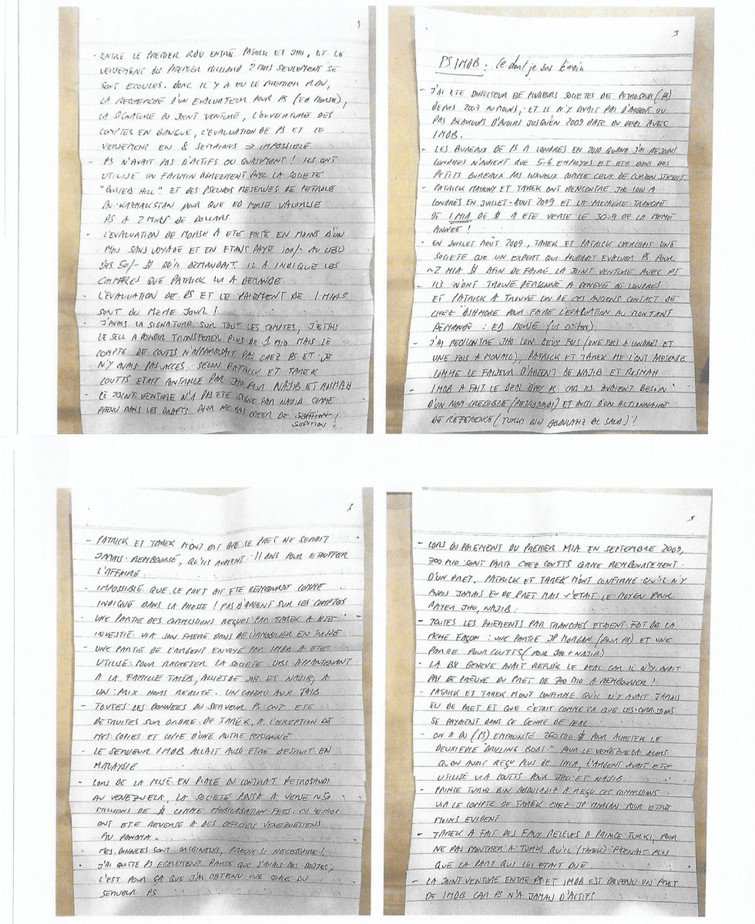 1
- ENTRE LE PREMIER RDV ENTRE PATRICK ET JHO, ET LE
VERSEMENT DU PREMIER MILLIARD 2 MOIS SEULEMENT SE
SONT ECOULES. DONC IL Y A EU LE PREMIER RDV,
LA RECHERCHE D'UN EVALUATEUR POUR PS (ED MORSE),
LA SIGNATURE DU JOINT VENTURE, L'OUVERTURE DES
COMPTES EN BANQUE, L'EVALUATION DE PS ET LE
VERSEMENT EN 8 SEMAINES => IMPOSSIBLE
- PS N'AVAIT PAS D'ACTIFS OU QUASIMENT! ILS ONT
UTILISE UN FARMIN AGREEMENT AVEC LA SOCIETE
"BURIED HILL" ET DES PSEUDOS RESERVES DE PETROLE
EN KAZAKHSTAN POUR QUE ED MORSE VALORISE
PS A 2 MIAS DE DOLLARS
- L'EVALUATION DE MORSE A ETE FAITE EN MOINS D'UN
MOIS SANS VOYAGE ET EN ETANT PAYE 100/- AU LIEU
DES 50/- $ QU'IL DEMANDAIT IL A INDIQUE LES
CHIFFRES QUE PATRICK LUI A DEMANDE.
- L'EVALUATION DE PS ET LE PAIEMENT DE 1 MIAS
SONT DU MEME JOUR!
- J'AVAIS LA SIGNATURE SUR TOUT LES COMPTES, J'ETAIS
LE SEUL A POUVOIR TRANSFERER PLUS DE 1 MIO. MAIS LE
COMPTE DE COUTTS N'APPARTENAIT PAS CHEZ PS ET JE
N'Y AVAIS PAS ACCES. SELON PATRICK ET TAREK
COUTTS ETAIT CONTROLE PAR JHO POUR NAJIB ET ROSMAH
LE JOINT VENTURE N'A PAS ETE SIGNE PAR NAJIB COMME
PREVU DANS LES DRAFTS POUR NE PAS CREER DE
SUSPICION!
3
PS/1MDB : Ce dont je suis témoin
- J'AI ETE DIRECTEUR DE PLUSIEURS SOCIETES DE PETROSAUDI (PS)
DEPUIS 2007 AU MOINS, ET IL N'Y AVAIT PAS D'ARGENT OU
PAS BEAUCOUP D'AVOIRS JUSQU'EN 2009 DATE DU DEAL AVEC
1MDB.
- LES BUREAUX DE PS A LONDRES EN 2010 QUAND J'AI REJOINS
LONDRES N'AVAIENT QUE 5-6 EMPLOYES ET ETAIT DANS DES
PETITS BUREAUX PAS LUXUEUX COMME CEUX DE CURZON STREET
- PATRICK MAHONY ET TAREK ONT RENCONTRE JHO LOW A
LONDRES EN JUILLET-AOUT 2009 ET LA PREMIERE TRANCHE
DE 1 MIA DE $ A ETE VERSE LE 30.9 DE LA MEME
ANNEE!
- EN JUILLET AOÛT 2009, TAREK ET PATRICK CHERCHAIT UNE
SOCIETE OU UN EXPERT QUI POURRAIT EVALUER PS POUR
~2 MIA $ AFIN DE FAIRE LA JOINT VENTURE AVEC PS
- ILS N'ONT TROUVE PERSONNE A GENEVE OU LONDRES
ET PATRICK A TROUVE UN DE CES ANCIENS CONTACT DE
CHEZ ASHMORE POUR FAIRE L'EVALUATION AU MONTANT
DEMANDE : ED MORSE (US CITIZEN).
- J'AI RENCONTRE JHO LOW DEUX FOIS (UNE FOIS A LONDRES ET
UNE FOIS A MONACO), PATRICK ET TAREK ME L'ONT PRESENTE
COMME LE FAISEUR D'ARGENT DE NAJIB ET ROSMAH
- 1MDB A FAIT LE DEAL AVEC PS CAR ILS AVAIENT BESOIN
D'UN NOM CREDIBLE (PETROSAUDI) ET AUSSI D'UN ACTIONNAIRE
DE REFERENCE (TURKI BIN ABDULAZIZ AL SAUD)!
- PATRICK ET TAREK M'ONT DIT QUE LE PRET NE SERAIT
JAMAIS REMBOURSE, QU'ILS AVAIENT 11 ANS POUR ETOUFFER
L'AFFAIRE
- IMPOSSIBLE QUE LE PRET AIT ETE REMBOURSE COMME
INDIQUE DANS LA PRESSE! PAS D'ARGENT SUR LES COMPTES
- UNE PARTIE DES COMMISSIONS REÇUES PAR TAREK A ETE
INVESTIE VIA SON FRERE DANS DE L'IMMOBILIER EN SUISSE
- UNE PARTIE DE L'ARGENT ENVOYE PAR 1MDB A ETE
UTILISE POUR RACHETER LA SOCIETE UBG APPARTENANT
A LA FAMILLE TAIEB, ALLIES DE JHO ET NAJIB, A
UN PRIX HORS REALITE. UN CADEAU AUX TAIB
- TOUTES LES DONNEES DU SERVEUR PS ONT ETE
DETRUITES SUR ORDRE DE TAREK, A L'EXCEPTION DE
MES COPIES ET COPIE D'UNE AUTRE PERSONNE
- LE SERVEUR 1MDB ALLAIT AUSSI ETRE DETRUIT EN
MALAYSIE
- LORS DE LA MISE EN PLACE DU CONTRAT PETROSAUDI
AU VENEZUELA, LA SOCIETE PDVSA A VERSE ~50
MILLIONS DE $ COMME MOBILISATION FEES
ONT ETE REVERSE A DES OFFICIELS VENEZUELIENS
AU PANAMA.
- MES DONNEES SONT ORIGINALES, PREUVE SI NECESSAIRE!
- J'AI QUITTE PS EGALEMENT PARCE QUE J'AVAIS DES DOUTES,
C'EST POUR ÇA QUE J'AI OBTENU UNE COPIE DU
SERVEUR PS
- LORS DU PAIEMENT DU PREMIER MIA EN SEPTEMBRE 2009,
700 MIO SONT PARTI CHEZ COUTTS COMME REMBOURSEMENT
D'UN PRET, PATRICK ET TAREK M'ONT CONFIRME QU'IL N'Y
AVAIT JAMAIS EU DE PRET MAIS C'ETAIT LE MOYEN POUR
PAYER JHO, NAJIB.
- TOUTES LES PAIEMENTS PAR TRANCHES ETAIENT FAIT DE LA
MEME FAÇON : UNE PARTIE JP MORGAN (POUR PS) ET UNE
PARTIE POUR COUTTS (POUR JHO + NAJIB)
- LA BSI GENEVE AVAIT REFUSE LE DEAL CAR IL N'Y AVAIT
PAS DE PREUVE DU PRET DE 700 MIO A REMBOURSER!
- PATRICK ET TAREK M'ONT CONFIRME QU'IL N'Y AVAIT JAMAIS
EU DE PRET ET QUE C'ETAIT COMME ÇA QUE LES COMMISSIONS
SE PAYAIENT DANS CE GENRE DE DEAL
- ON A DU (PS) EMPRUNTE 260 MIO $ POUR ACHETER LE
DEUXIEME DRILLING BOAT POUR LE VENEZUELA ALORS
QU'ON AVAIT REÇU PLUS DE 1 MIA, L'ARGENT AVAIT ETE
UTILISE VIA COUTTS POUR JHO ET NAJIB
- PRINCE TURKI BIN ABDULLAZIZ A REÇU CES COMMISSIONS
VIA LE COMPTE DE TAREK CHEZ JP MORGAN POUR ETRE
MOINS EVIDENT
- TAREK A FAIT DES FAUX RELEVES A PRINCE TURKI, POUR
NE PAS MONTRER A TURKI QU'IL (TAREK) PRENAIT PLUS
QUE LA PART QUI LUI ETAIT DUE
- LA JOINT VENTURE ENTRE PS ET 1MDB EST DEVENU UN PRET
DE 1MDB CAR PS N'A JAMAIS D'ACTIFS